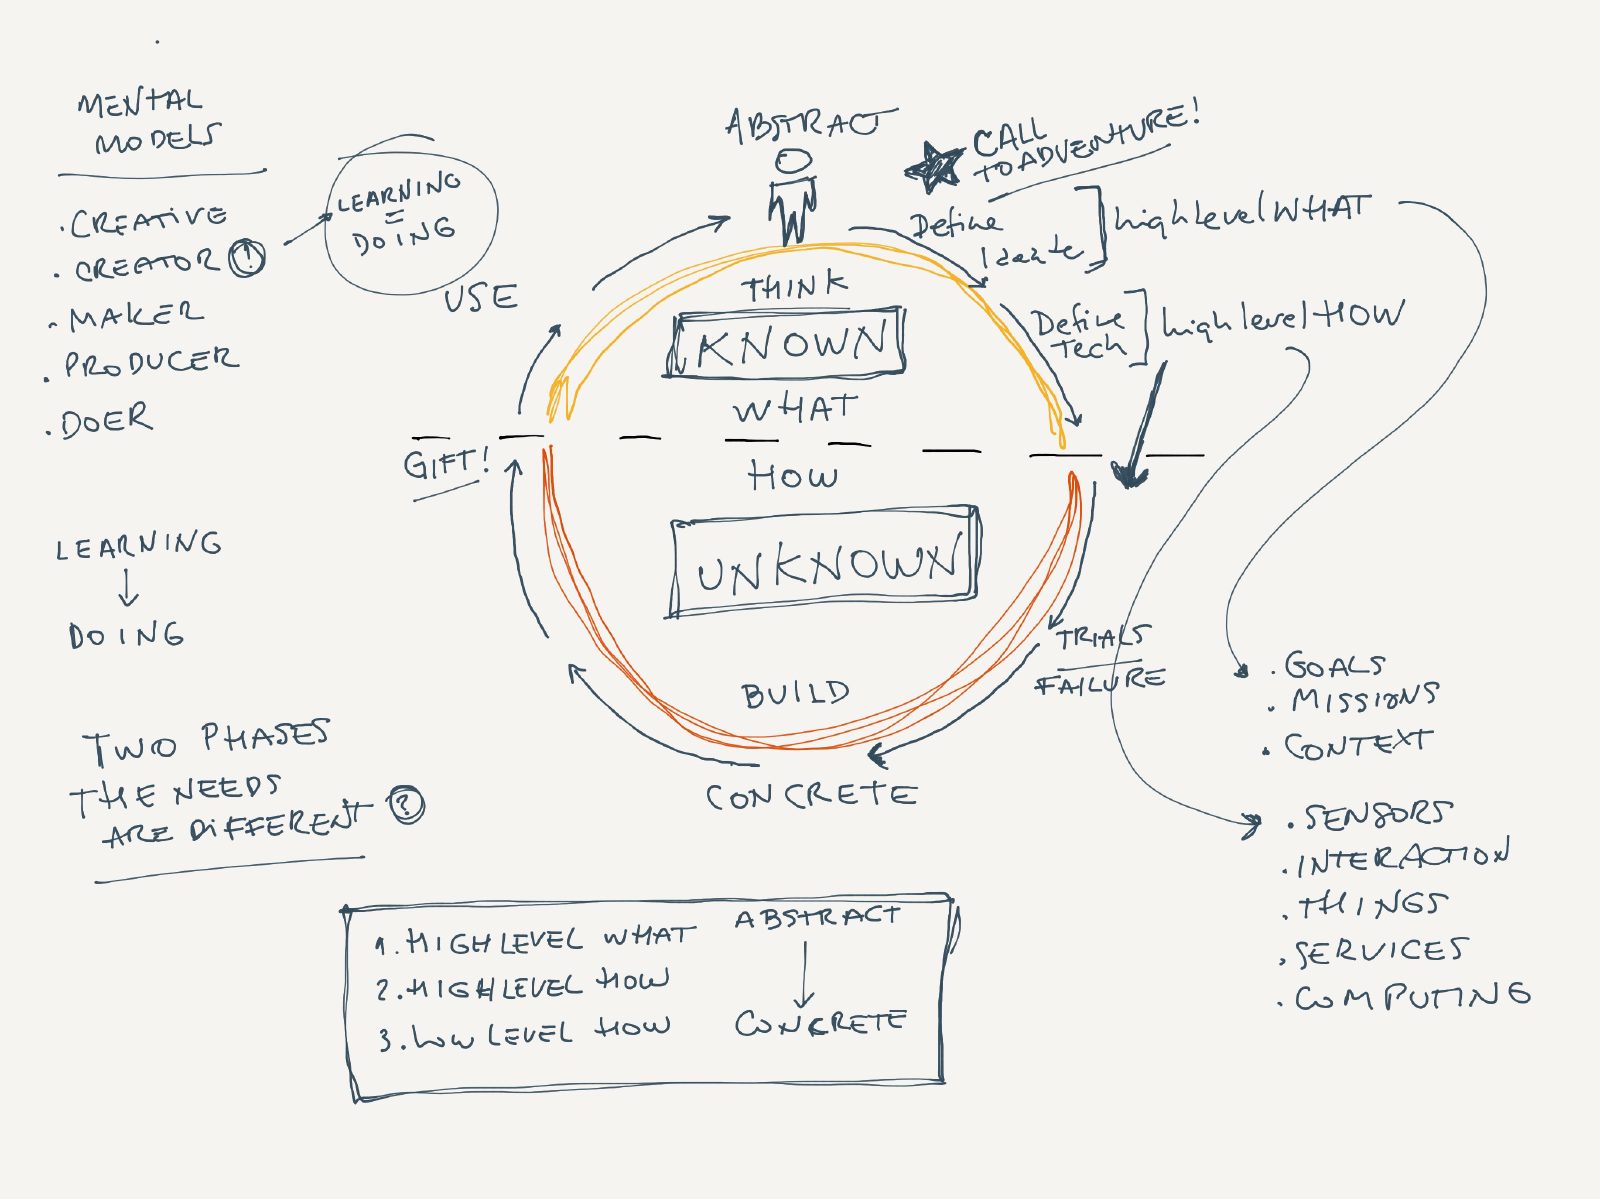 MENTAL
MODELS
. CREATIVE
. CREATOR !
. MAKER
. PRODUCER
. DOER
LEARNING
=
DOING
LEARNING
DOING
TWO PHASES
THE NEEDS
ARE DIFFERENT ?
ABSTRACT
CALL
TO ADVENTURE!
Define
Ideate
high level WHAT
Define
Tech
high level HOW
USE
THINK
KNOWN
WHAT
GIFT!
HOW
UNKNOWN
BUILD
TRIALS
FAILURE
CONCRETE
. GOALS
. MISSIONS
. CONTEXT
. SENSORS
. INTERACTION
. THINGS
. SERVICES
. COMPUTING
1. HIGH LEVEL WHAT
2. HIGH LEVEL HOW
3. LOW LEVEL HOW
ABSTRACT
CONCRETE